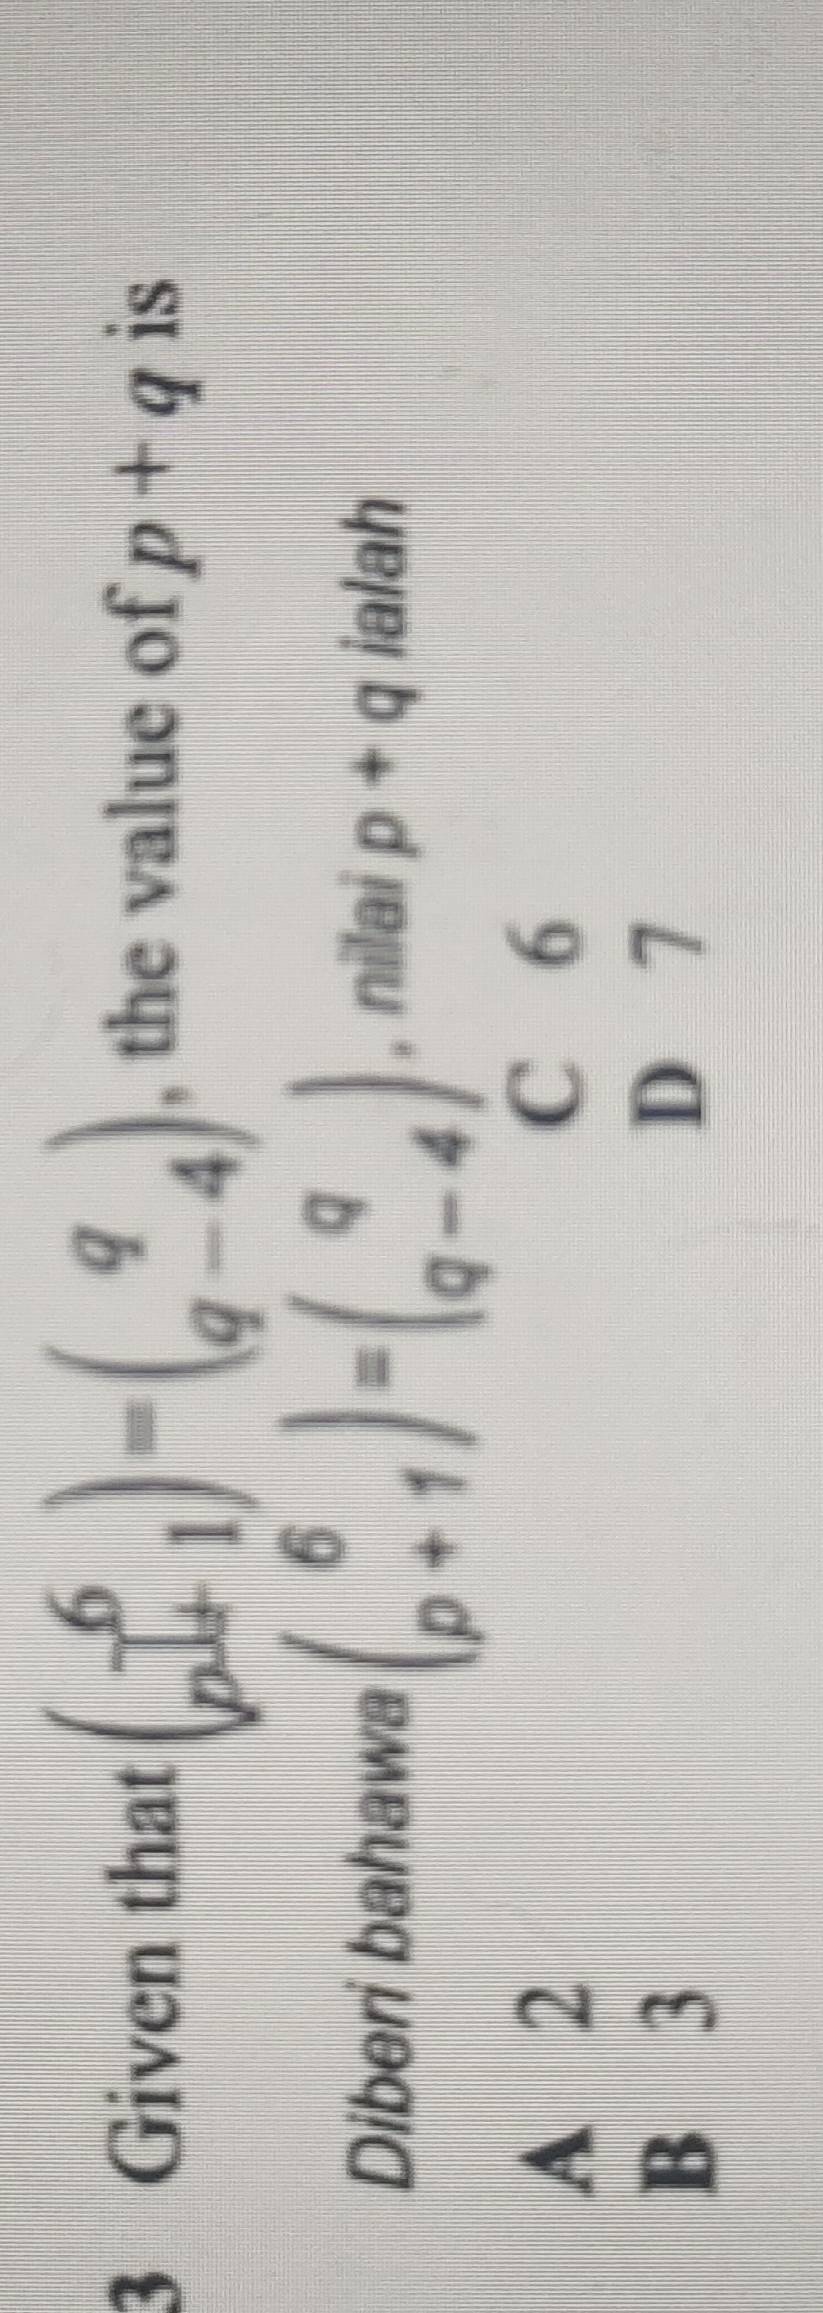 3 Given that (6 / p + 1) = (q / q − 4), the value of p + q is
Diberi bahawa (6 / p + 1) = (q / q − 4), nilai p + q ialah
A 2 C 6
B 3 D 7